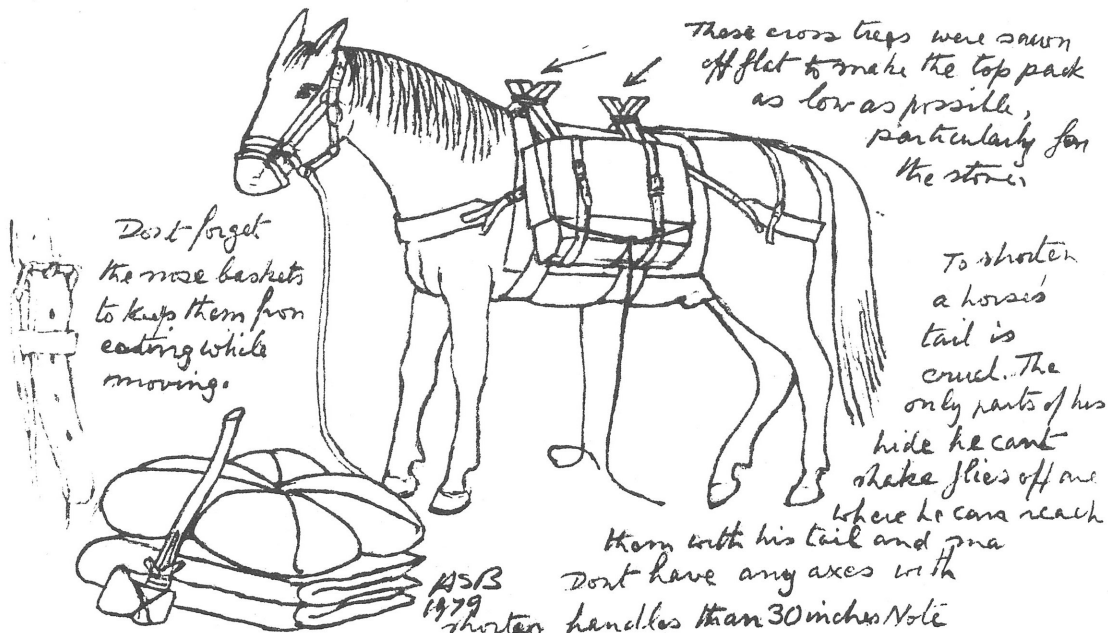 These cross trees were sawn
off flat to make the top pack
as low as possible,
particularly for
the stoves
Dont forget
the nose baskets
to keep them from
eating while
moving.
To shorten
a horse's
tail is
cruel. The
only parts of his
hide he cant
shake flies off are
where he can reach
them with his tail and
Dont have any axes with
shorter handles than 30 inches Note
ASB
1979